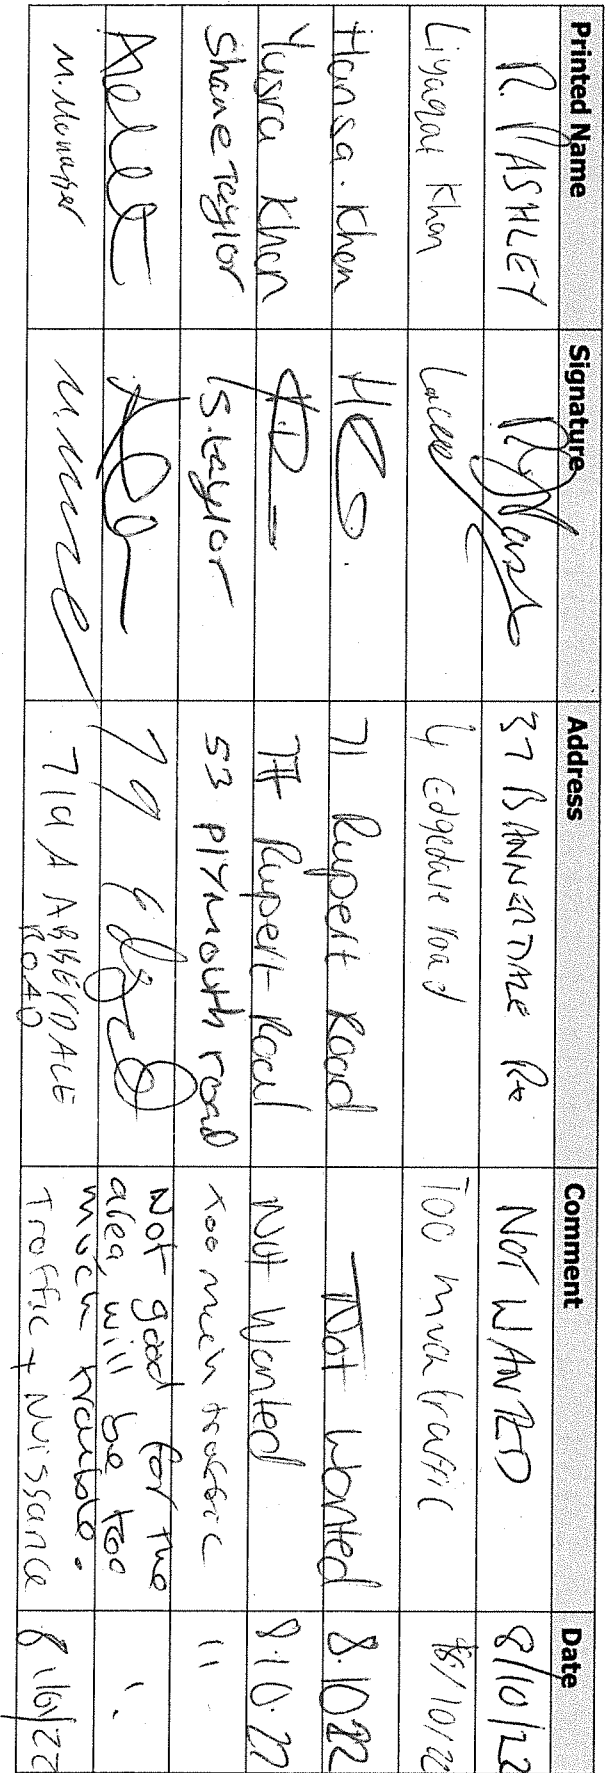 Printed Name Signature Address Comment Date
R. PASHLEY 37 BANNERDALE Rd NOT WANTED 8/10/22
Liyaqat Khan 4 Edgedale road Too much traffic 8/10/22
Hansa. Khan 71 Rupert Road Not Wanted 8.10.22
Yusra Khan 71 Rupert Road Not Wanted 8.10.22
Shane Taylor S. taylor 53 PLYMOUTH road too much traffic "
79 Not good for the
area, will be too
much trouble.
M. 714 A ABBEYDALE
ROAD Traffic + Nuissance 8/10/22